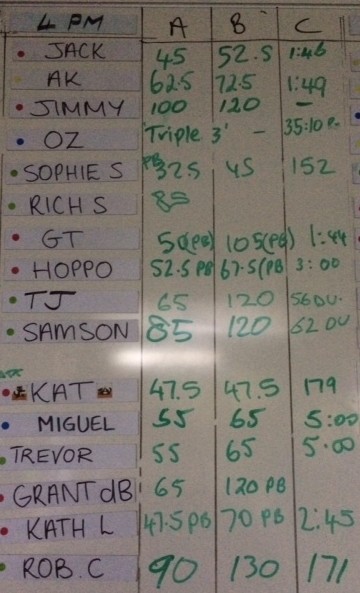 4 PM A B C
JACK 45 52.5 1:46
AK 62.5 72.5 1:49
JIMMY 100 120 –
OZ 'Triple 3' – 35:10
SOPHIE S PB 32.5 45 152
RICH S 85
GT 50(PB) 105(PB) 1:44
HOPPO 52.5 PB 67.5(PB 3:00
TJ 65 120 56 DU.
SAMSON 85 120 62 DU
KAT 47.5 47.5 179
MIGUEL 55 65 5:00
TREVOR 55 65 5:00
GRANT dB 65 120 PB
KATH L 47.5 PB 70 PB 2:45
ROB.C 90 130 171